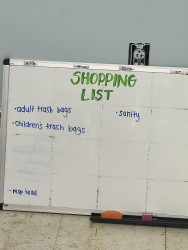 SHOPPING
LIST
· adult trash bags
· sanity
· children's trash bags
· mop head